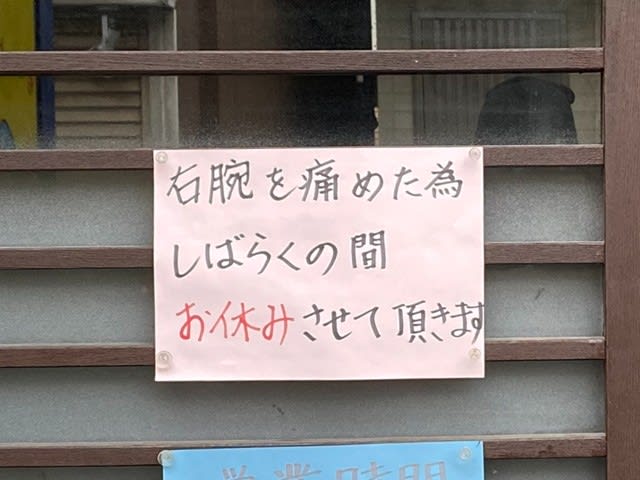 右腕を痛めた為
しばらくの間
お休みさせて頂きます
営業時間